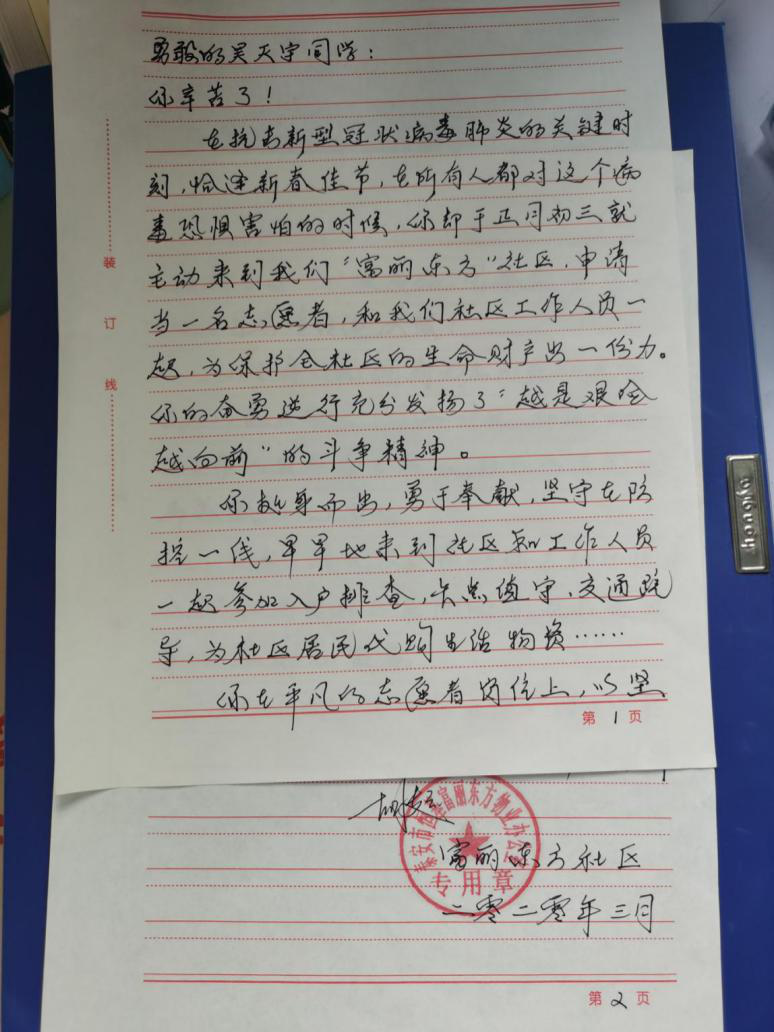 勇敢的吴天宇同学：
你辛苦了！
在抗击新型冠状病毒肺炎的关键时
刻，恰逢新春佳节，在所有人都对这个病
毒恐惧害怕的时候，你却于正月初三就
主动来到我们“富丽东方”社区，申请
当一名志愿者，和我们社区工作人员一
起，为保护全社区的生命财产出一份力。
你的奋勇逆行充分发扬了“越是艰险
越向前”的斗争精神。
你挺身而出，勇于奉献，坚守在防
控一线，早早地来到社区和工作人员
一起参加入户排查，卡点值守，交通疏
导，为社区居民代购生活物资……
你在平凡的志愿者岗位上，以坚
第 1 页
装
订
线
泰安市恒富丽东方物业办公室
专用章
富丽东方社区
二零二零年三月
第 2 页
synergy